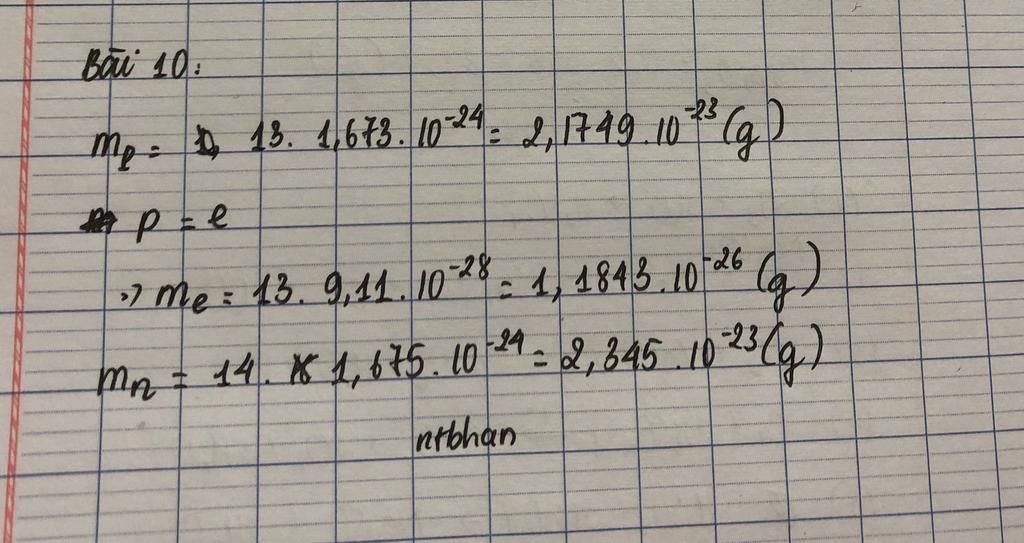 Bài 10:
mp = 13. 1,673. 10⁻²⁴ = 2,1749. 10⁻²³ (g)
p = e
=> me = 13. 9,11. 10⁻²⁸ = 1,1843. 10⁻²⁶ (g)
mn = 14. 1,675. 10⁻²⁴ = 2,345. 10⁻²³ (g)
ntbhan